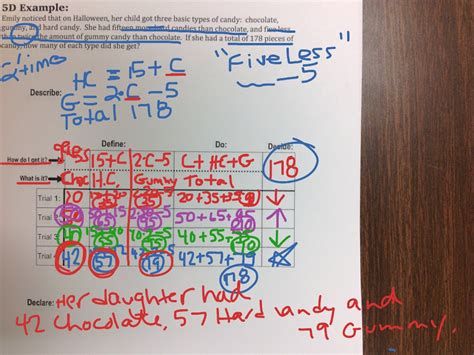 5D Example:
Emily noticed that on Halloween, her child got three basic types of candy: chocolate,
gummy, and hard candy. She had fifteen more hard candies than chocolate, and five less
than twice the amount of gummy candy than chocolate. If she had a total of 178 pieces of
candy, how many of each type did she get?
2 time
"Five Less"
__-5
Describe:
HC = 15+C
G = 2·C - 5
Total 178
Define: Do: Decide:
How do I get it? guess 15+C 2·C-5 C+HC+G 178
What is it? Choc H.C. Gummy Total
Trial 1 20 35 35 20+35+35 90 ↓
50 65 95 50+65+95 ↑
Trial 3 40 55 40+55+ ↓
Trial 42 57 79 42+57+79 178
Declare: Her daughter had
42 Chocolate, 57 Hard candy and
79 Gummy.